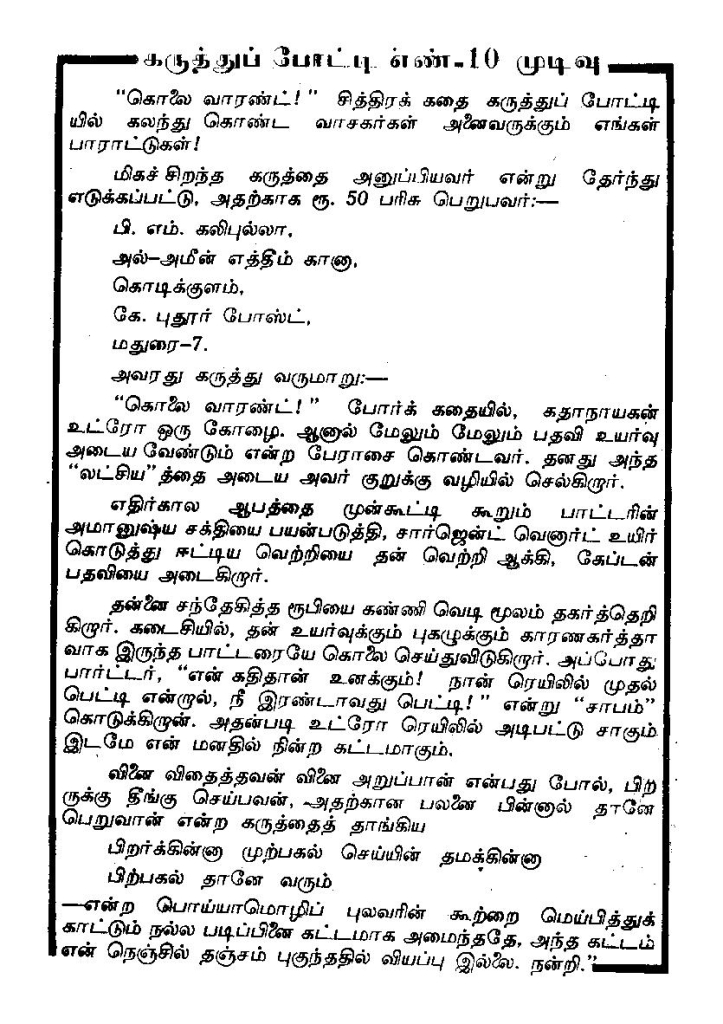 கருத்துப் போட்டி எண்-10 முடிவு
"கொலை வாரண்ட்!" சித்திரக் கதை கருத்துப் போட்டி
யில் கலந்து கொண்ட வாசகர்கள் அனைவருக்கும் எங்கள்
பாராட்டுகள்!
மிகச் சிறந்த கருத்தை அனுப்பியவர் என்று தேர்ந்து
எடுக்கப்பட்டு, அதற்காக ரூ. 50 பரிசு பெறுபவர்:—
பி. எம். கலிபுல்லா,
அல்-அமீன் எத்தீம் கானா,
கொடிக்குளம்,
கே. புதூர் போஸ்ட்,
மதுரை-7.
அவரது கருத்து வருமாறு:—
"கொலை வாரண்ட்!" போர்க் கதையில், கதாநாயகன்
உட்ரோ ஒரு கோழை. ஆனால் மேலும் மேலும் பதவி உயர்வு
அடைய வேண்டும் என்ற பேராசை கொண்டவர். தனது அந்த
"லட்சிய"த்தை அடைய அவர் குறுக்கு வழியில் செல்கிறார்.
எதிர்கால ஆபத்தை முன்கூட்டி கூறும் பாட்டரின்
அமானுஷ்ய சக்தியை பயன்படுத்தி, சார்ஜென்ட் வெனார்ட் உயிர்
கொடுத்து ஈட்டிய வெற்றியை தன் வெற்றி ஆக்கி, கேப்டன்
பதவியை அடைகிறார்.
தன்னை சந்தேகித்த ரூபியை கண்ணி வெடி மூலம் தகர்த்தெறி
கிறார். கடைசியில், தன் உயர்வுக்கும் புகழுக்கும் காரணகர்த்தா
வாக இருந்த பாட்டரையே கொலை செய்துவிடுகிறார். அப்போது
பார்ட்டர், "என் கதிதான் உனக்கும்! நான் ரெயிலில் முதல்
பெட்டி என்றால், நீ இரண்டாவது பெட்டி!" என்று "சாபம்"
கொடுக்கிறான். அதன்படி உட்ரோ ரெயிலில் அடிபட்டு சாகும்
இடமே என் மனதில் நின்ற கட்டமாகும்.
வினை விதைத்தவன் வினை அறுப்பான் என்பது போல், பிற
ருக்கு தீங்கு செய்பவன், அதற்கான பலனை பின்னால் தானே
பெறுவான் என்ற கருத்தைத் தாங்கிய
பிறர்க்கின்னா முற்பகல் செய்யின் தமக்கின்னா
பிற்பகல் தானே வரும்
—என்ற பொய்யாமொழிப் புலவரின் கூற்றை மெய்பித்துக்
காட்டும் நல்ல படிப்பினை கட்டமாக அமைந்ததே, அந்த கட்டம்
என் நெஞ்சில் தஞ்சம் புகுந்ததில் வியப்பு இல்லை. நன்றி."